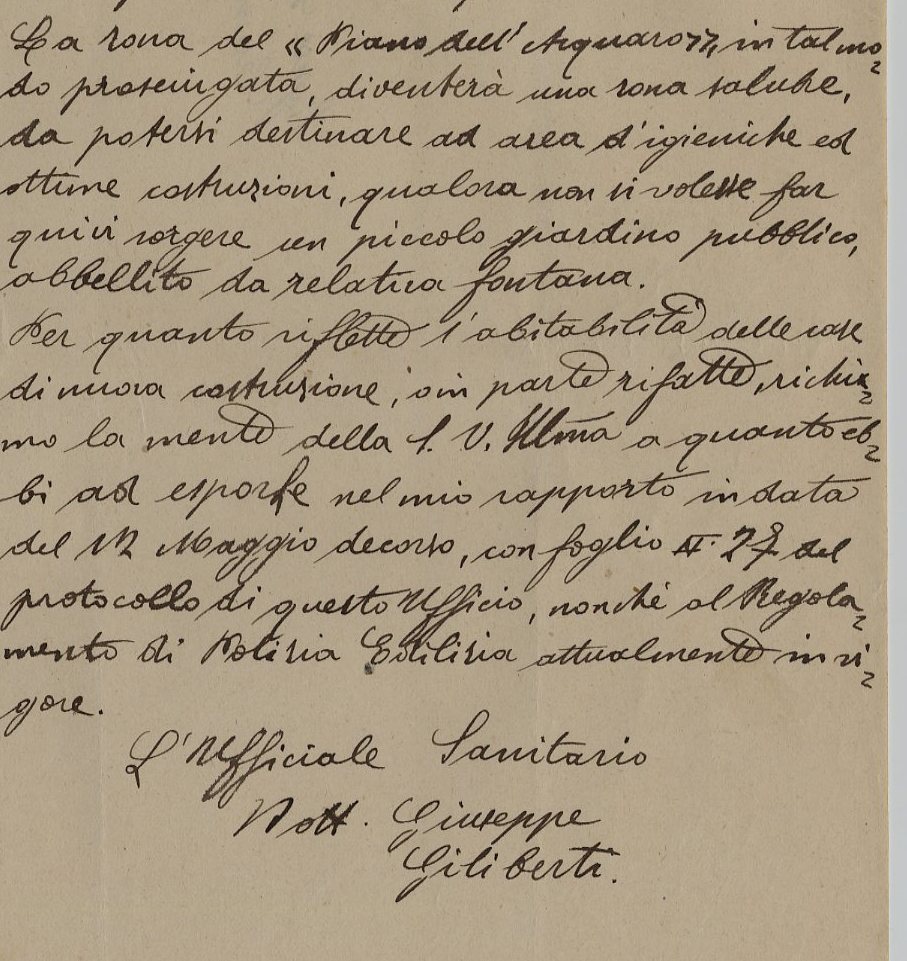 La zona del « Piano dell'Acquaro », in tal mo-
do prosciugata, diventerà una zona salubre,
da potersi destinare ad area d'igieniche ed
ottime costruzioni, qualora non si volesse far
quivi sorgere un piccolo giardino pubblico,
abbellito da relativa fontana.
Per quanto riflette l'abitabilità delle case
di nuova costruzione, o in parte rifatte, richia-
mo la mente della S. V. Illma a quanto eb-
bi ad esporle nel mio rapporto in data
del 12 Maggio decorso, con foglio N. 27 del
protocollo di questo Ufficio, nonchè al Regola-
mento di Polizia Edilizia attualmente in vi-
gore.
L'Ufficiale Sanitario
Dott. Giuseppe
Giliberti.